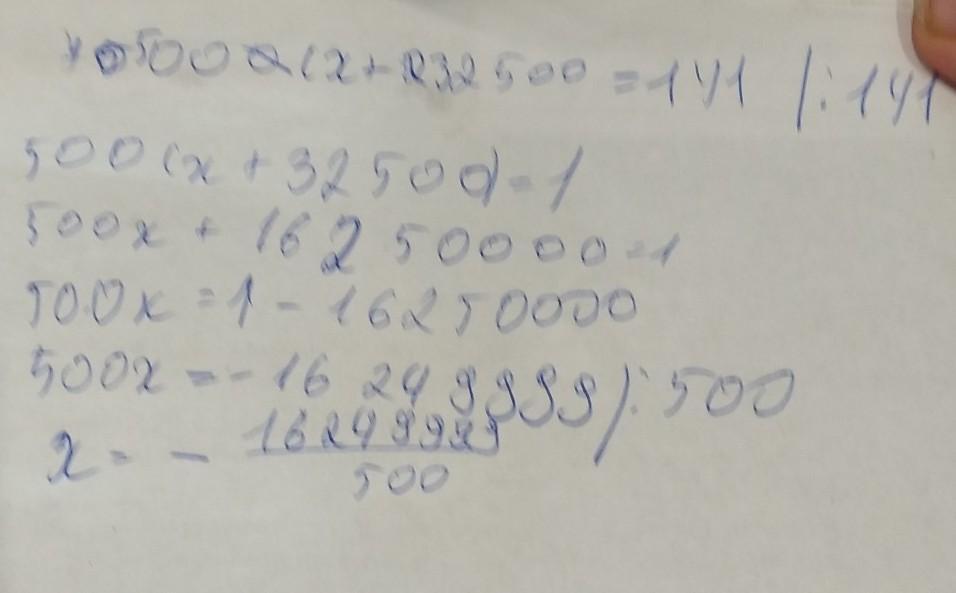 500 (x + 32500 = 141 /: 141
500 (x + 32500) = 1
500x + 16250000 = 1
500x = 1 - 16250000
500x = - 16249999 /: 500
x = - 16249999
500